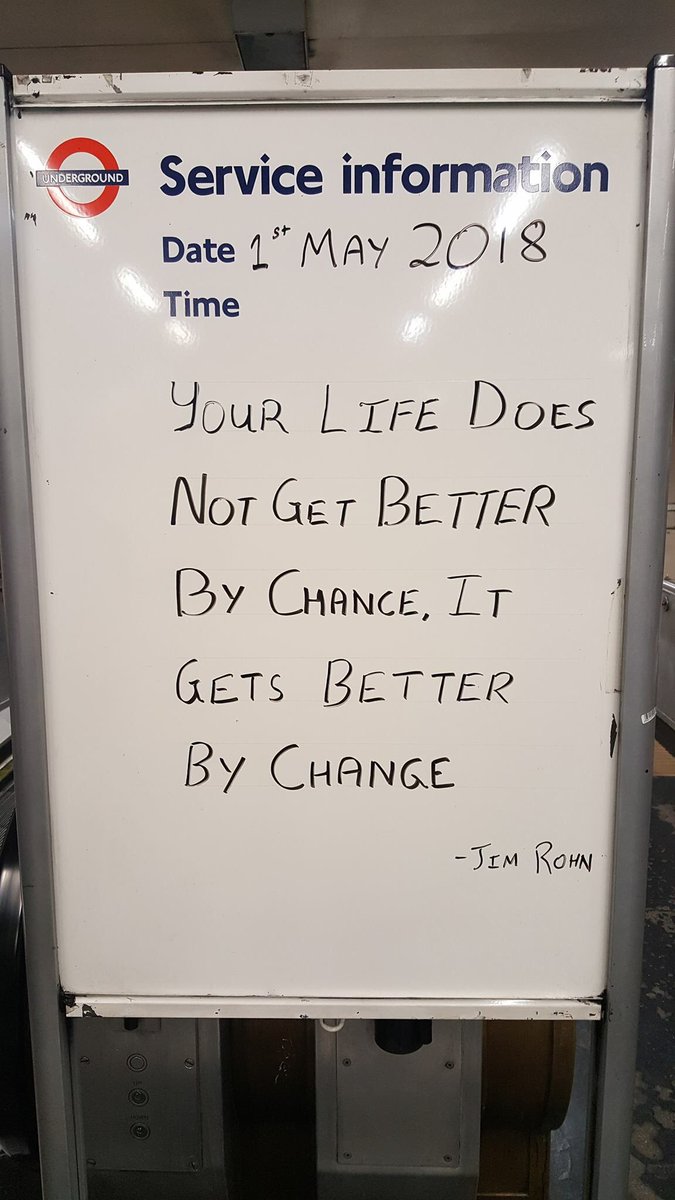 UNDERGROUND
Service information
Date 1st MAY 2018
Time
YOUR LIFE DOES
NOT GET BETTER
BY CHANCE, IT
GETS BETTER
BY CHANGE
-JIM ROHN